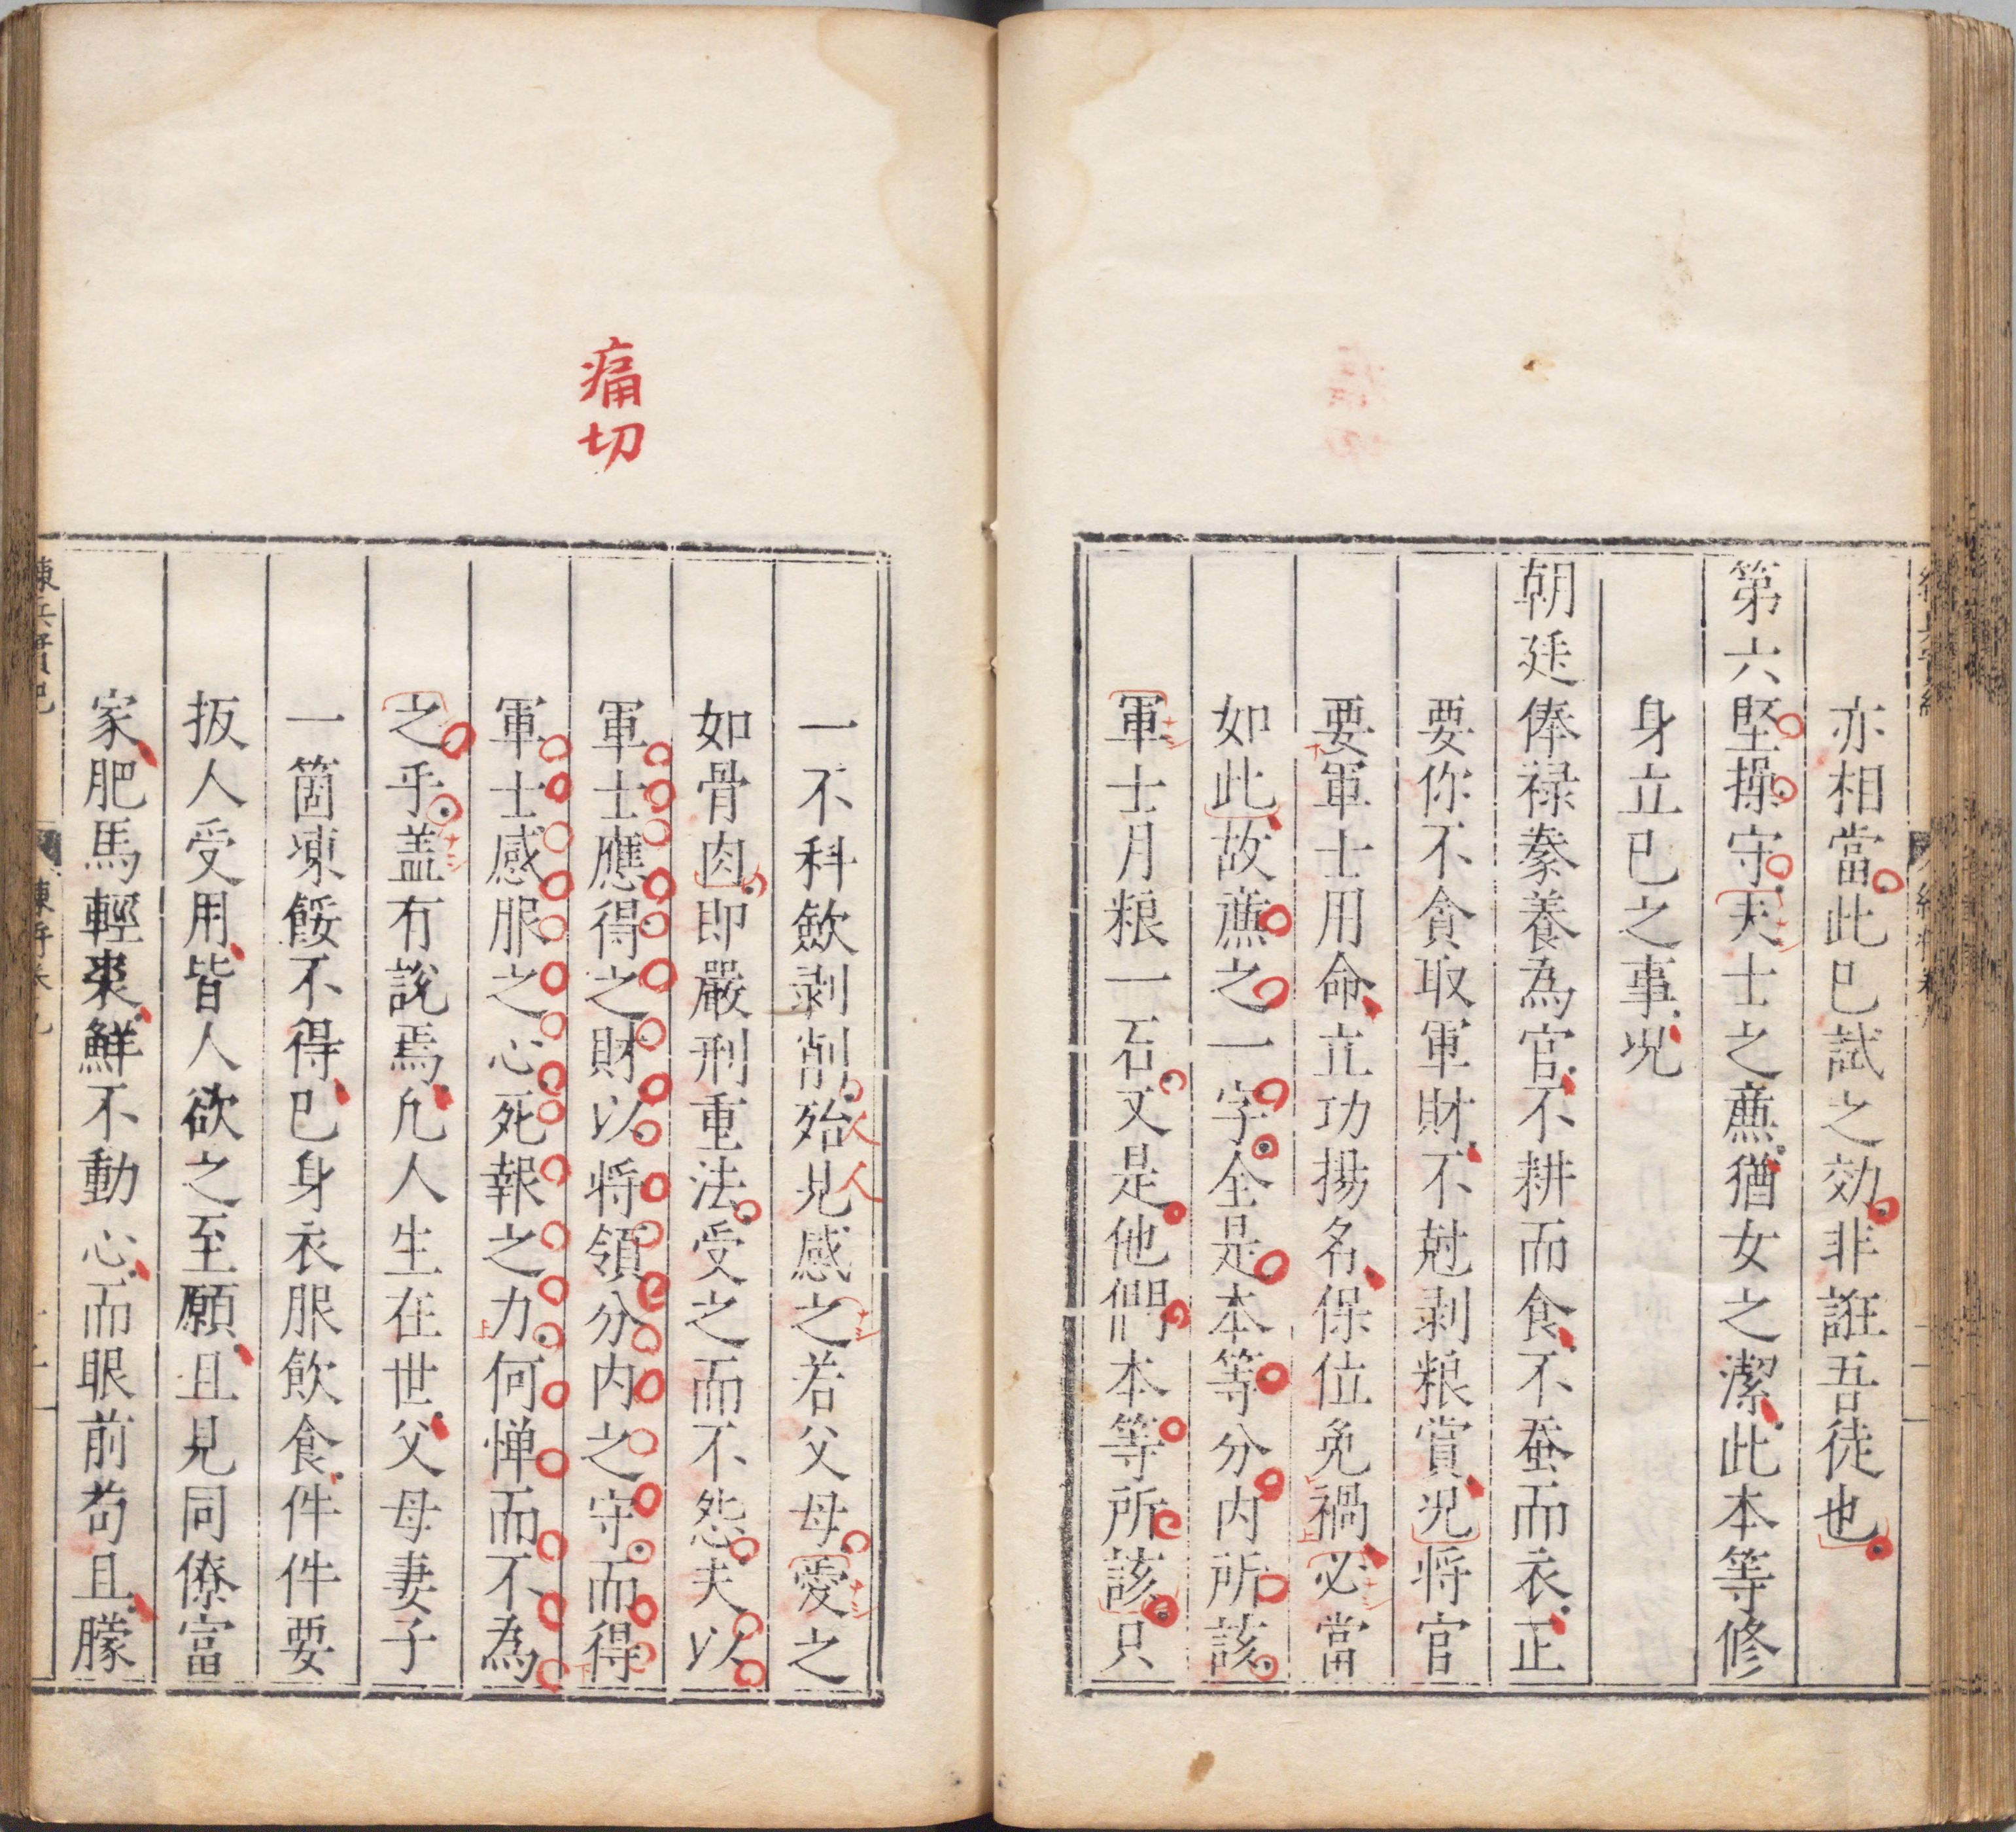 亦相當此已試之効非誑吾徒也
第六堅操守夫士之亷猶女之潔此本等修
身立已之事况
朝廷俸禄豢養為官不耕而食不蚕而衣正
要你不貪取軍財不尅剥粮賞况将官
要軍士用命立功揚名保位免禍必當
如此故亷之一字全是本等分内所該
軍士月粮一石又是他們本等所該只
痛切
一不科歛剥削殆見感之若父母愛之
如骨肉即嚴刑重法受之而不怨夫以
軍士應得之財以将領分内之守而得
軍士感服之心死報之力何憚而不為
之乎盖有說焉凢人生在世父母妻子
一箇凍餒不得已身衣服飲食件件要
扳人受用皆人欲之至願且見同僚富
家肥馬輕裘鮮不動心而眼前苟且朦